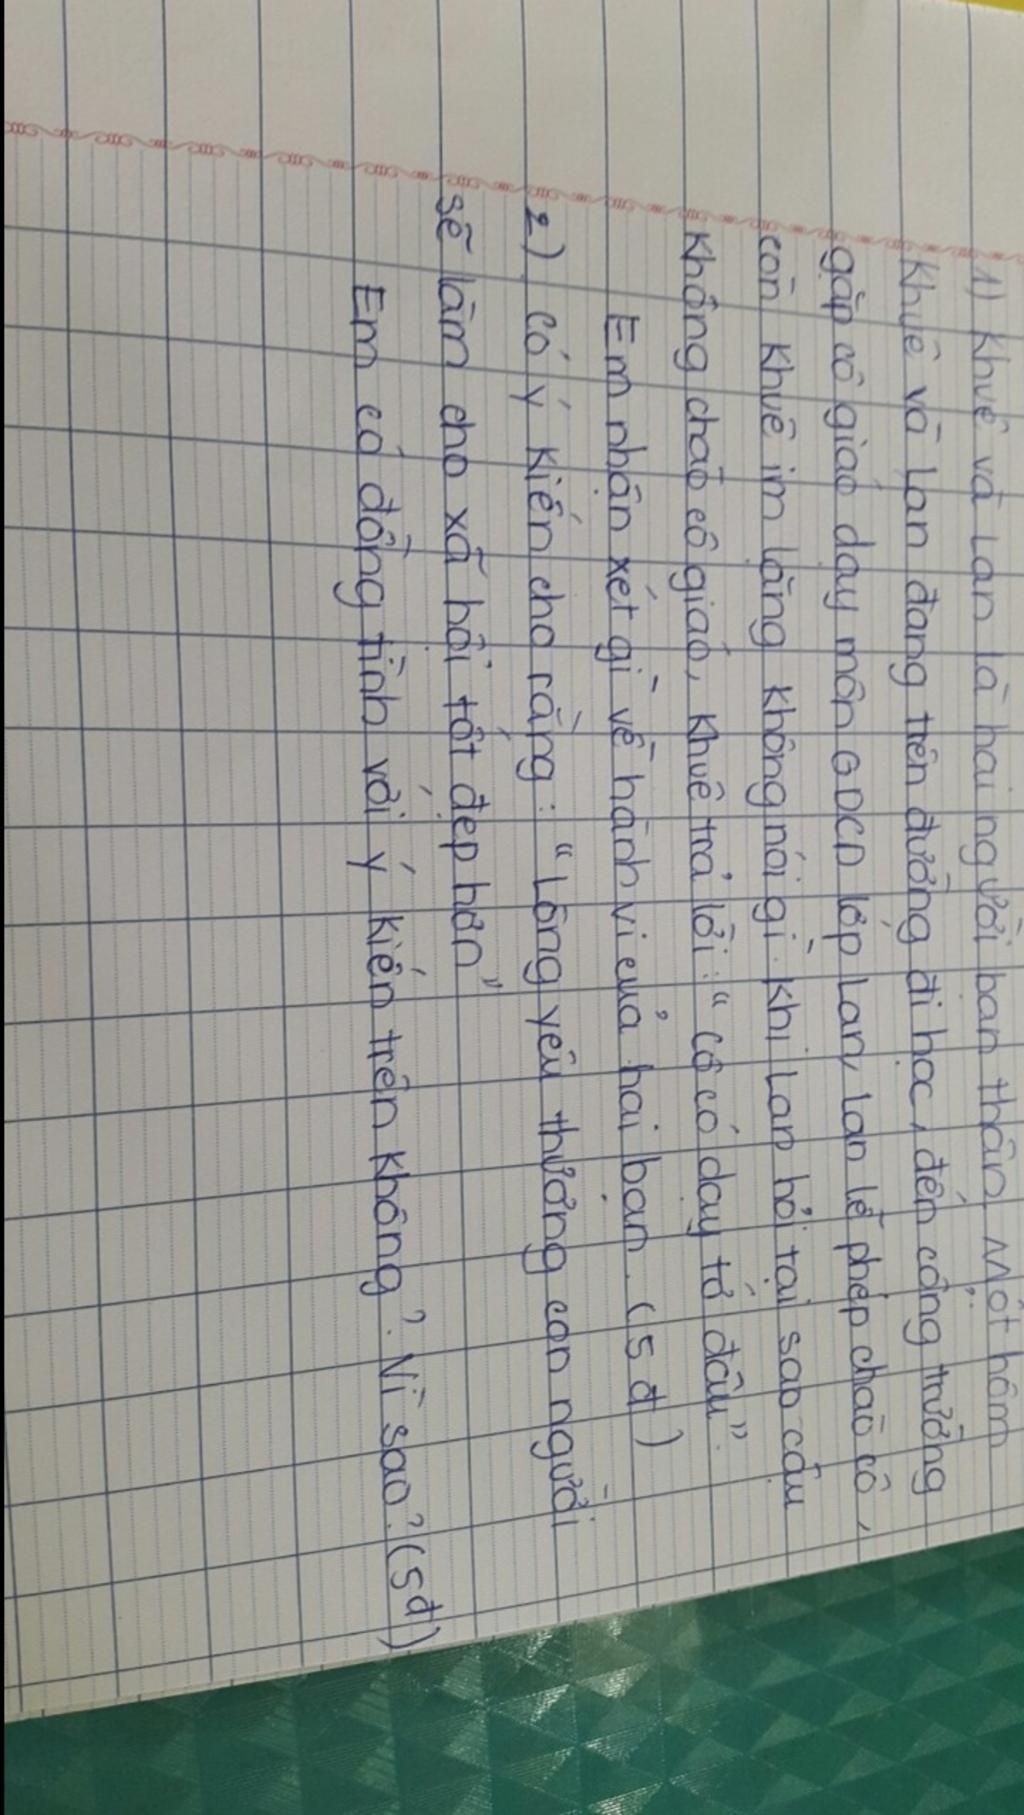 1) Khuê và Lan là hai người bạn thân. Một hôm
Khuê và Lan đang trên đường đi học, đến cổng trường
gặp cô giáo dạy môn GDCD lớp Lan, Lan lễ phép chào cô,
còn Khuê im lặng không nói gì. Khi Lan hỏi tại sao cậu
không chào cô giáo, Khuê trả lời: "Cô có dạy tớ đâu".
Em nhận xét gì về hành vi của hai bạn. (5đ)
2) Có ý kiến cho rằng: "Lòng yêu thương con người
sẽ làm cho xã hội tốt đẹp hơn"
Em có đồng tình với ý kiến trên không? Vì sao? (5đ)